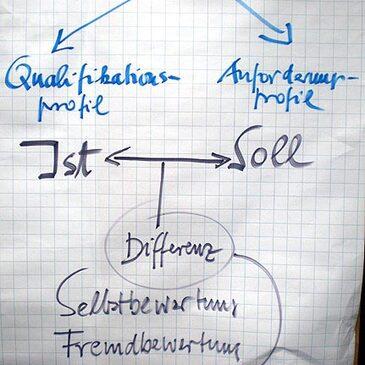 Qualifikations-
profil
Anforderungs-
profil
Ist Soll
Differenz
Selbstbewertung
Fremdbewertung